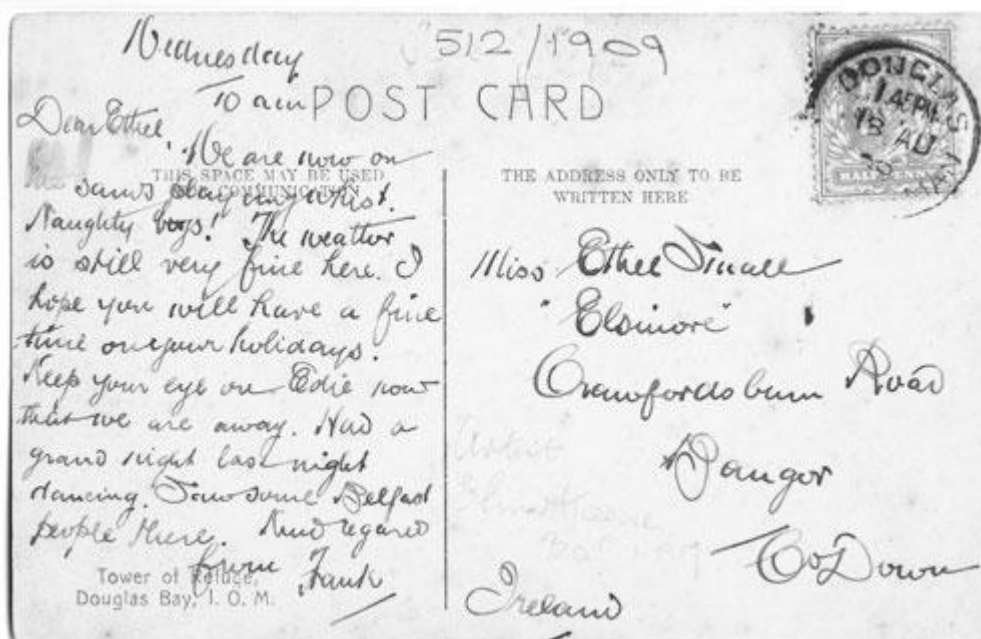 Wednesday
10 am
512/1909
POST CARD
DOUGLAS
18 AU
HALFPENNY
THIS SPACE MAY BE USED
COMMUNICATION
THE ADDRESS ONLY TO BE
WRITTEN HERE
Dear Ethel
We are now on
the sands playing whist.
Naughty boys! The weather
is still very fine here. I
hope you will have a fine
time on your holidays.
Keep your eye on Edie now
that we are away. Had a
grand night last night
dancing. Saw some Belfast
people there. Kind regards
from Frank
Tower of Refuge,
Douglas Bay, I. O. M.
Miss Ethel Small
"Elsinore"
Crawfordsburn Road
Bangor
Co Down
Ireland